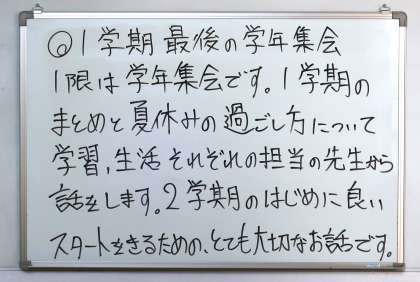 ◎1学期 最後の学年集会
1限は学年集会です。1学期の
まとめと夏休みの過ごし方について
学習,生活 それぞれの担当の先生から
話をします。2学期のはじめに良い
スタートをきるための、とても大切なお話です。